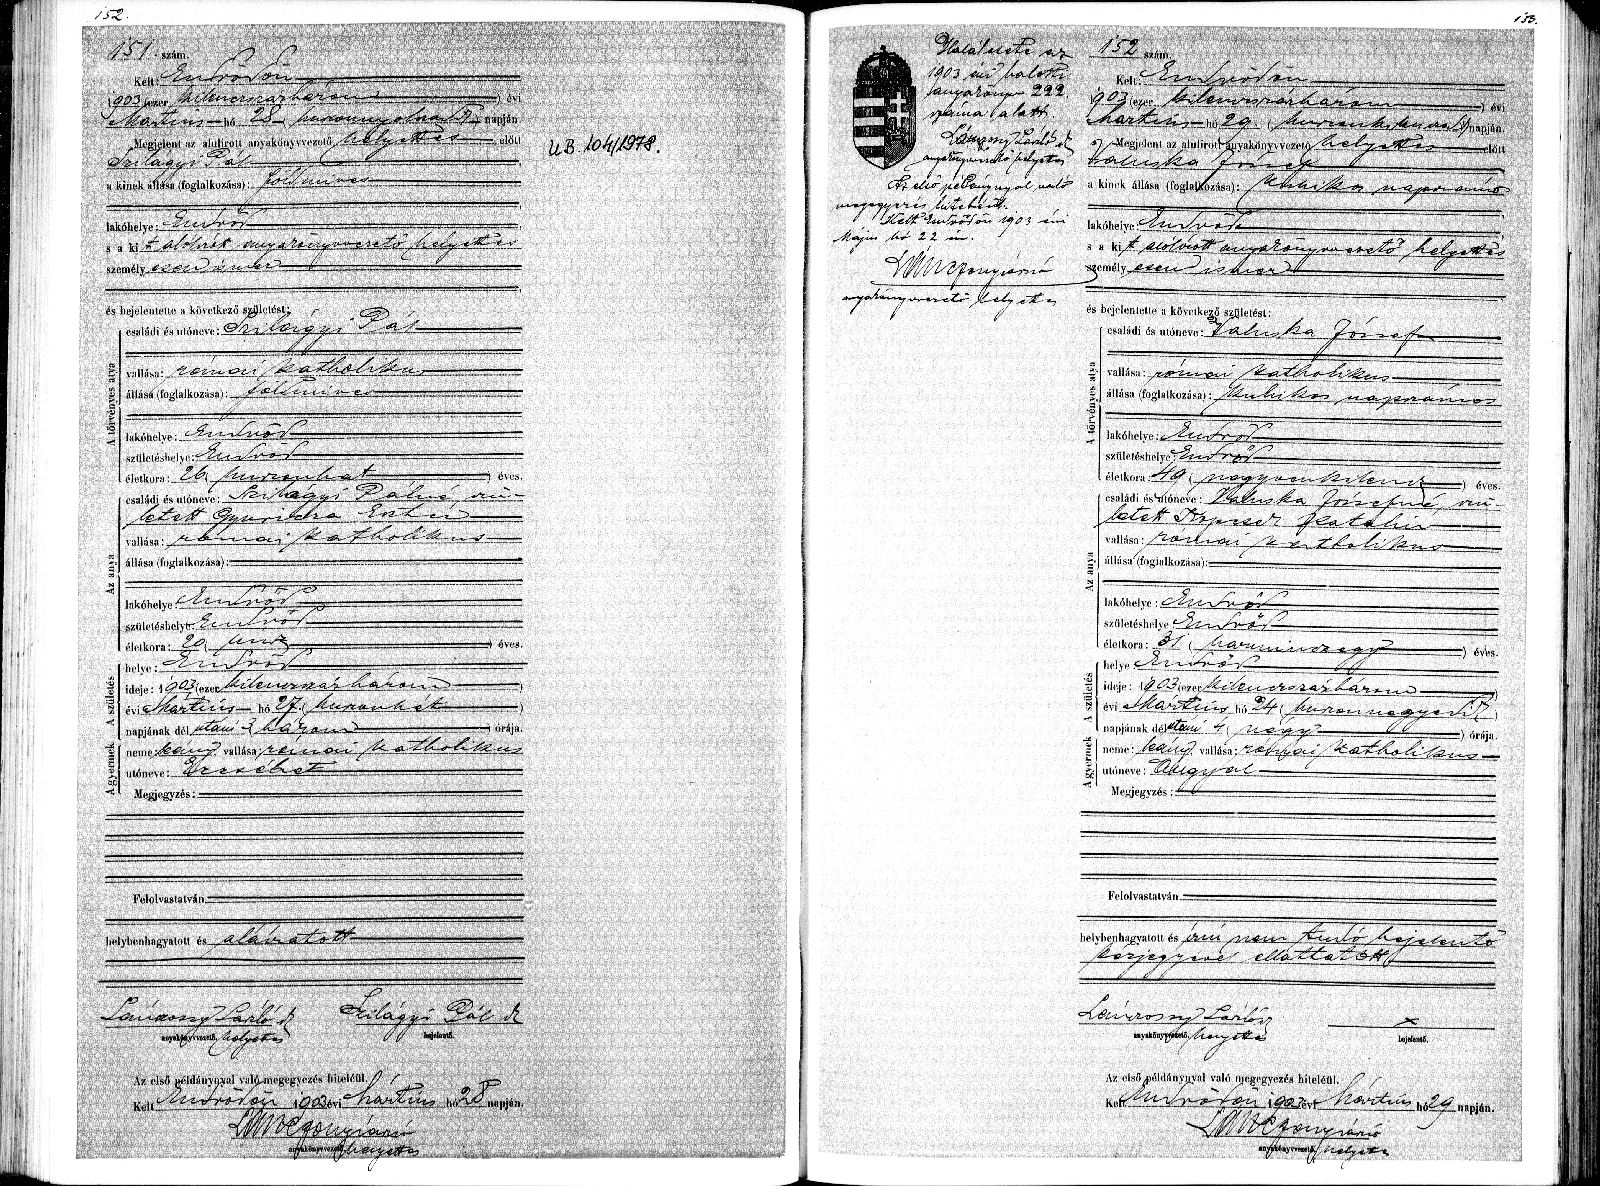 152.
151. szám.
Kelt: Endrődön
1903 (ezer kilenczszázhárom) évi
Mártius hó 28 (huszonnyolczadik) napján
Megjelent az alulirott anyakönyvvezető helyettes előtt
Szilágyi Pál
a kinek állása (foglalkozása): földmives
lakóhelye: Endrőd
s a kit alólirott anyakönyvvezető helyettes
személyesen ismer
és bejelentette a következő születést:
A törvényes atya
családi és utóneve: Szilágyi Pál
vallása: római katholikus
állása (foglalkozása): földmives
lakóhelye: Endrőd
születéshelye: Endrőd
életkora: 26 (huszonhat) éves.
Az anya
családi és utóneve: Szilágyi Pálné, szü-
letett Eszter
vallása: római katholikus
állása (foglalkozása):
lakóhelye: Endrőd
születéshelye: Endrőd
életkora: 20 (husz) éves.
A születés
helye: Endrőd
ideje: 1903 (ezer kilenczszázhárom)
évi Mártius hó 27. (huszonhét
napjának dél utáni 3 (három) órája.
A gyermek
neme: leány vallása: római katholikus
utóneve: Erzsébet
Megjegyzés:
Felolvastatván
helybenhagyatott és aláiratott
Lánczossy László Szilágyi Pál
anyakönyvvezető, helyettes bejelentő.
Az első példánynyal való megegyezés hiteléül.
Kelt Endrődön 1903 évi Mártius hó 28 napján.
anyakönyvvezető helyettes
U.B. 104/1978.
153.
Halálesete az
1903 évi halotti
anyakönyv 222
száma alatt.
László
anyakönyvvezető helyettes
Az első példánynyal való
megegyezés hiteléül.
Kelt Endrődön 1903 évi
Május hó 22 én.
anyakönyvvezető helyettes
152 szám
Kelt: Endrődön
1903 (ezer kilenczszázhárom) évi
Mártius hó 29. (huszonkilenczedik) napján.
Megjelent az alulirott anyakönyvvezető helyettes előtt
Valuska József
a kinek állása (foglalkozása): kubikos napszámos
lakóhelye: Endrőd
s a kit alólirott anyakönyvvezető helyettes
személyesen ismer
és bejelentette a következő születést:
A törvényes atya
családi és utóneve: Valuska József
vallása: római katholikus
állása (foglalkozása): kubikos napszámos
lakóhelye: Endrőd
születéshelye: Endrőd
életkora: 49 (negyvenkilencz) éves.
Az anya
családi és utóneve: Valuska Józsefné, szü-
letett Katalin
vallása: római katholikus
állása (foglalkozása):
lakóhelye: Endrőd
születéshelye Endrőd
életkora: 31 (harminczegy) éves.
A születés
helye Endrőd
ideje: 1903 (ezer kilenczszázhárom
évi Mártius hó 24 (huszonnegyedik)
napjának dél utáni 4 (négy) órája.
A gyermek
neme: leány vallása: római katholikus
utóneve: Angyal
Megjegyzés:
Felolvastatván
helybenhagyatott és irni nem tudó bejelentő
kézjegyével elláttatott
Lánczossy László x
anyakönyvvezető, helyettes bejelentő.
Az első példánynyal való megegyezés hiteléül.
Kelt Endrődön 1903 évi Mártius hó 29 napján.
anyakönyvvezető helyettes